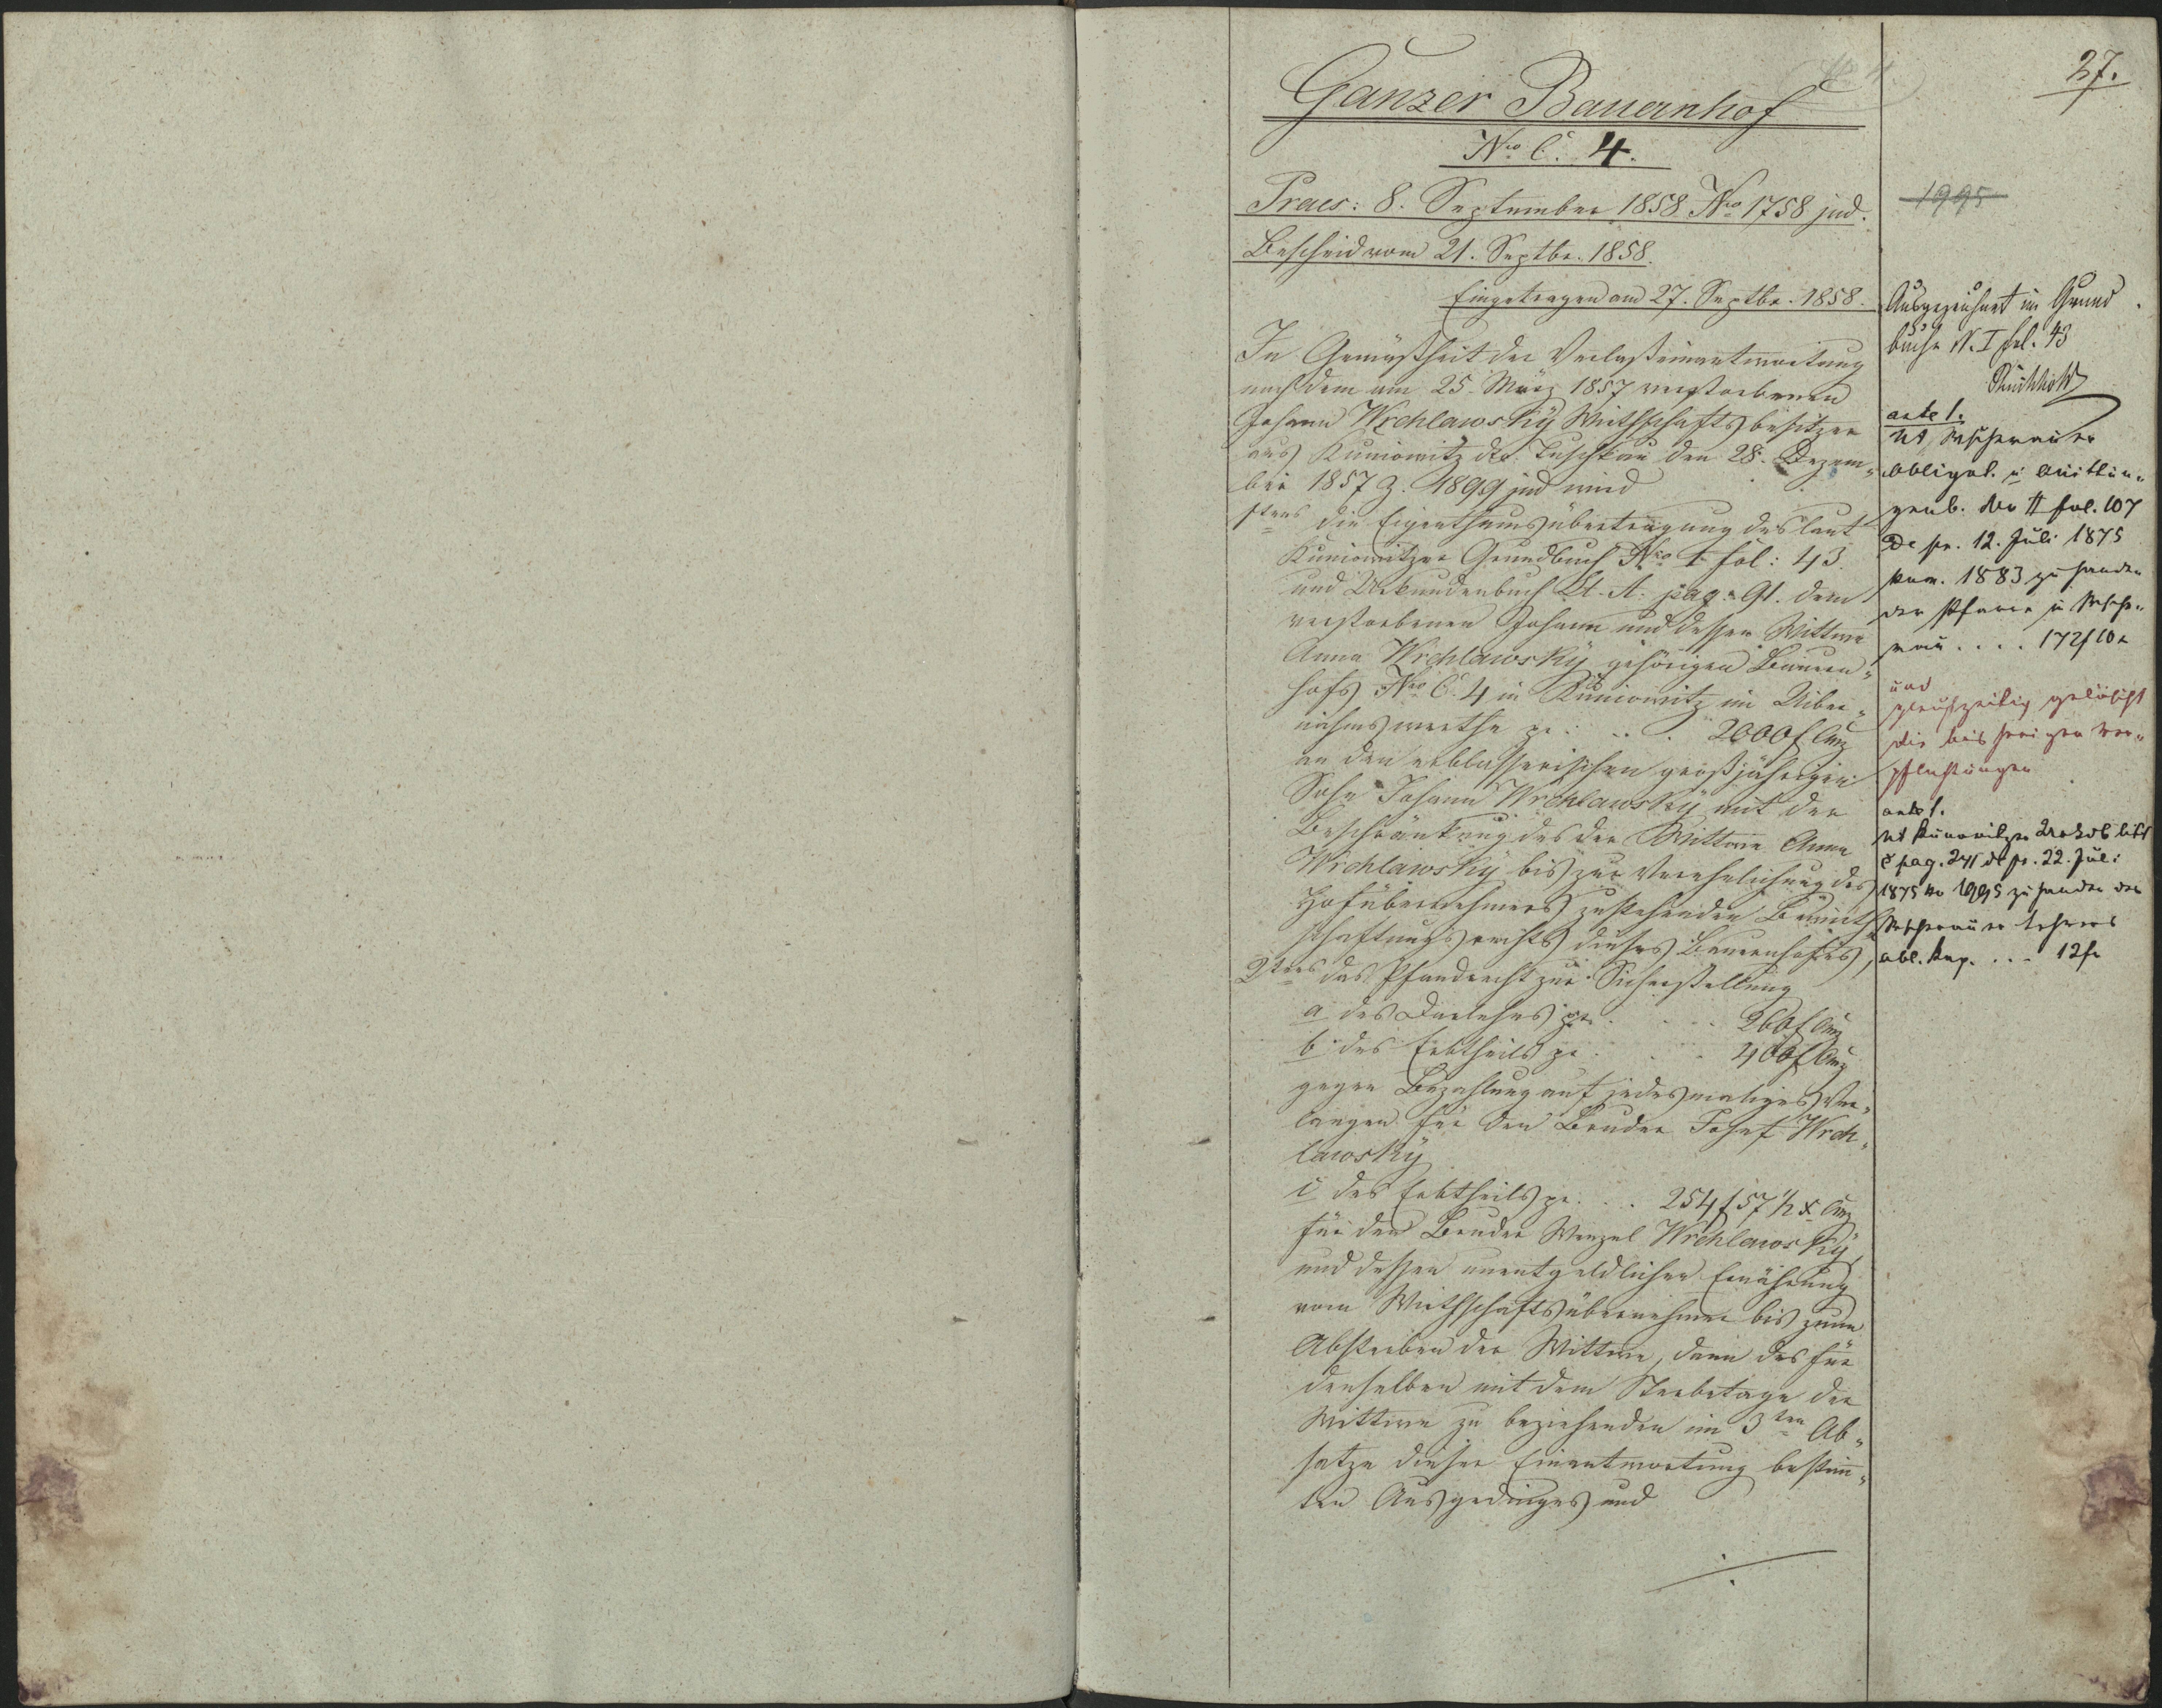 27.
Ganzer Bauernhof
Nro C. 4.
Praes: 8. September 1858 Nro 1758 jud.
Bescheid vom 21. Septbr. 1858.
Eingetragen am 27. Septbr. 1858.
In Gemäßheit der Verlaßeinantwortung
nach dem am 25. März 1857 verstorbenen
Johann Wrchlawsky Wirthschaftsbesitzer
aus Kuniowitz dto. Tuschkau den 28. Dezem-
ber 1857 Z. 1899 jud wird
1tens die Eigenthumsübertragung des laut
Kuniowitzer Grundbuch Nro I fol: 43.
und Urkundenbuch Lt. A. pag: 91. dem
verstorbenen Johann und dessen Wittwe
Anna Wrchlawsky gehörigen Bauern-
hofs Nro C. 4 in Kuniowitz im Uiber-
nahmswerthe pr. . . . 2000 f CMz
an den erblasserischen großjährigen
Sohn Johann Wrchlawsky mit der
Beschränkung des der Wittwe Anna
Wrchlawsky bis zur Verehelichung des
Hofübernehmers zustehenden Bewirth-
schaftungsrechts dieses Bauernhofes,
2tens das Pfandrecht zur Sicherstellung
a des Darlehns pr. . . . 260 f CMz
b des Erbtheils pr. . . . 400 f CMz
gegen Bezahlung auf jedesmaliges Ver-
langen für den Bruder Josef Wrch-
lawsky
c des Erbtheils pr. . . 254 f 57 1/2 x CMz
für den Bruder Wenzel Wrchlawsky,
und dessen unentgeldlicher Ernährung
vom Wirthschaftsübernehmer bis zum
Absterben der Wittwe, dann des für
denselben mit dem Sterbetage der
Wittwe zu beziehenden im 3ten Ab-
satze dieser Einantwortung bestim-
ten Ausgedinges und
./.
1995
Ausgezeichnet im Grund
buche N. I fol. 43
ante 1.
Obligat. u Quittun-
genb. Nro II fol. 107
De pr. 12. Juli 1875
Num. 1883 zu Handen
der Pfarre
. . . . 172 f 10 x
und
gleichzeitig gelöscht
die bisherigen Ver-
pflichtungen
ante 1.
pag. 241 de pr. 22. Juli
1875 No 1995 zu Handen des
Lehrers
obl. Kap. . . . 12 f